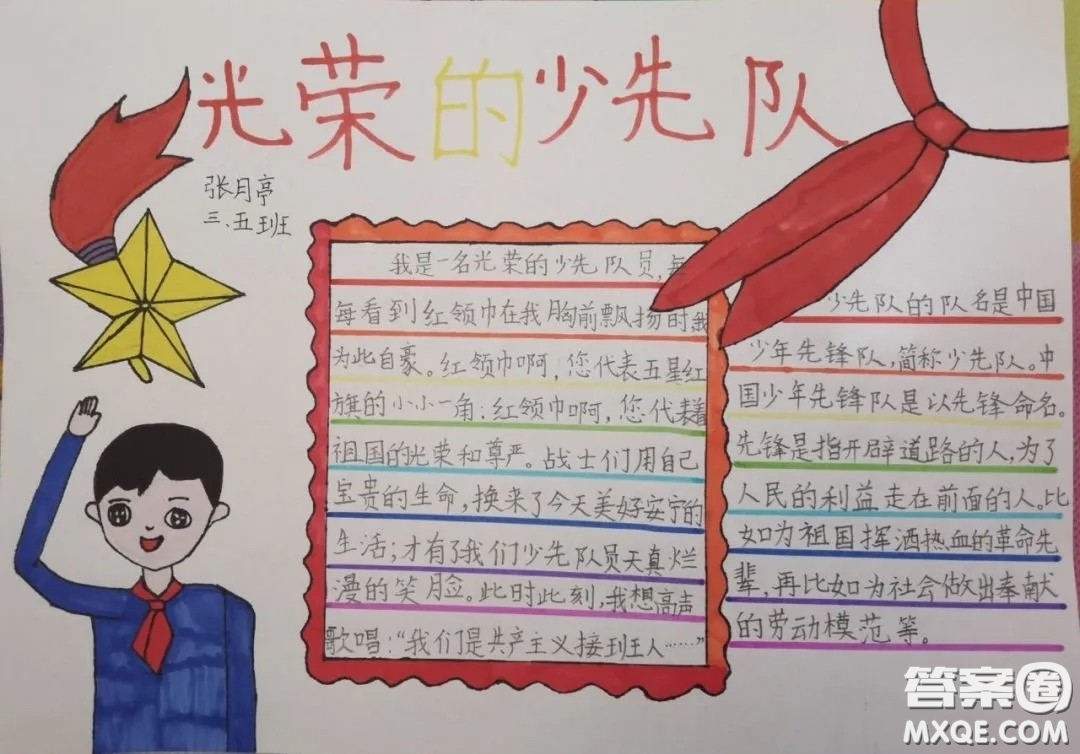 光荣的少先队
张月亭
三、五班
我是一名光荣的少先队员,每
每看到红领巾在我胸前飘扬时,我
为此自豪。红领巾啊,您代表五星红
旗的小小一角;红领巾啊,您代表着
祖国的光荣和尊严。战士们用自己
宝贵的生命,换来了今天美好安宁的
生活;才有了我们少先队员天真烂
漫的笑脸。此时此刻,我想高声
歌唱:“我们是共产主义接班人……”
少先队的队名是中国
少年先锋队,简称少先队。中
国少年先锋队是以先锋命名。
先锋是指开辟道路的人,为了
人民的利益走在前面的人。比
如为祖国挥洒热血的革命先
辈,再比如为社会做出奉献
的劳动模范等。
答案圈
MXQE.COM